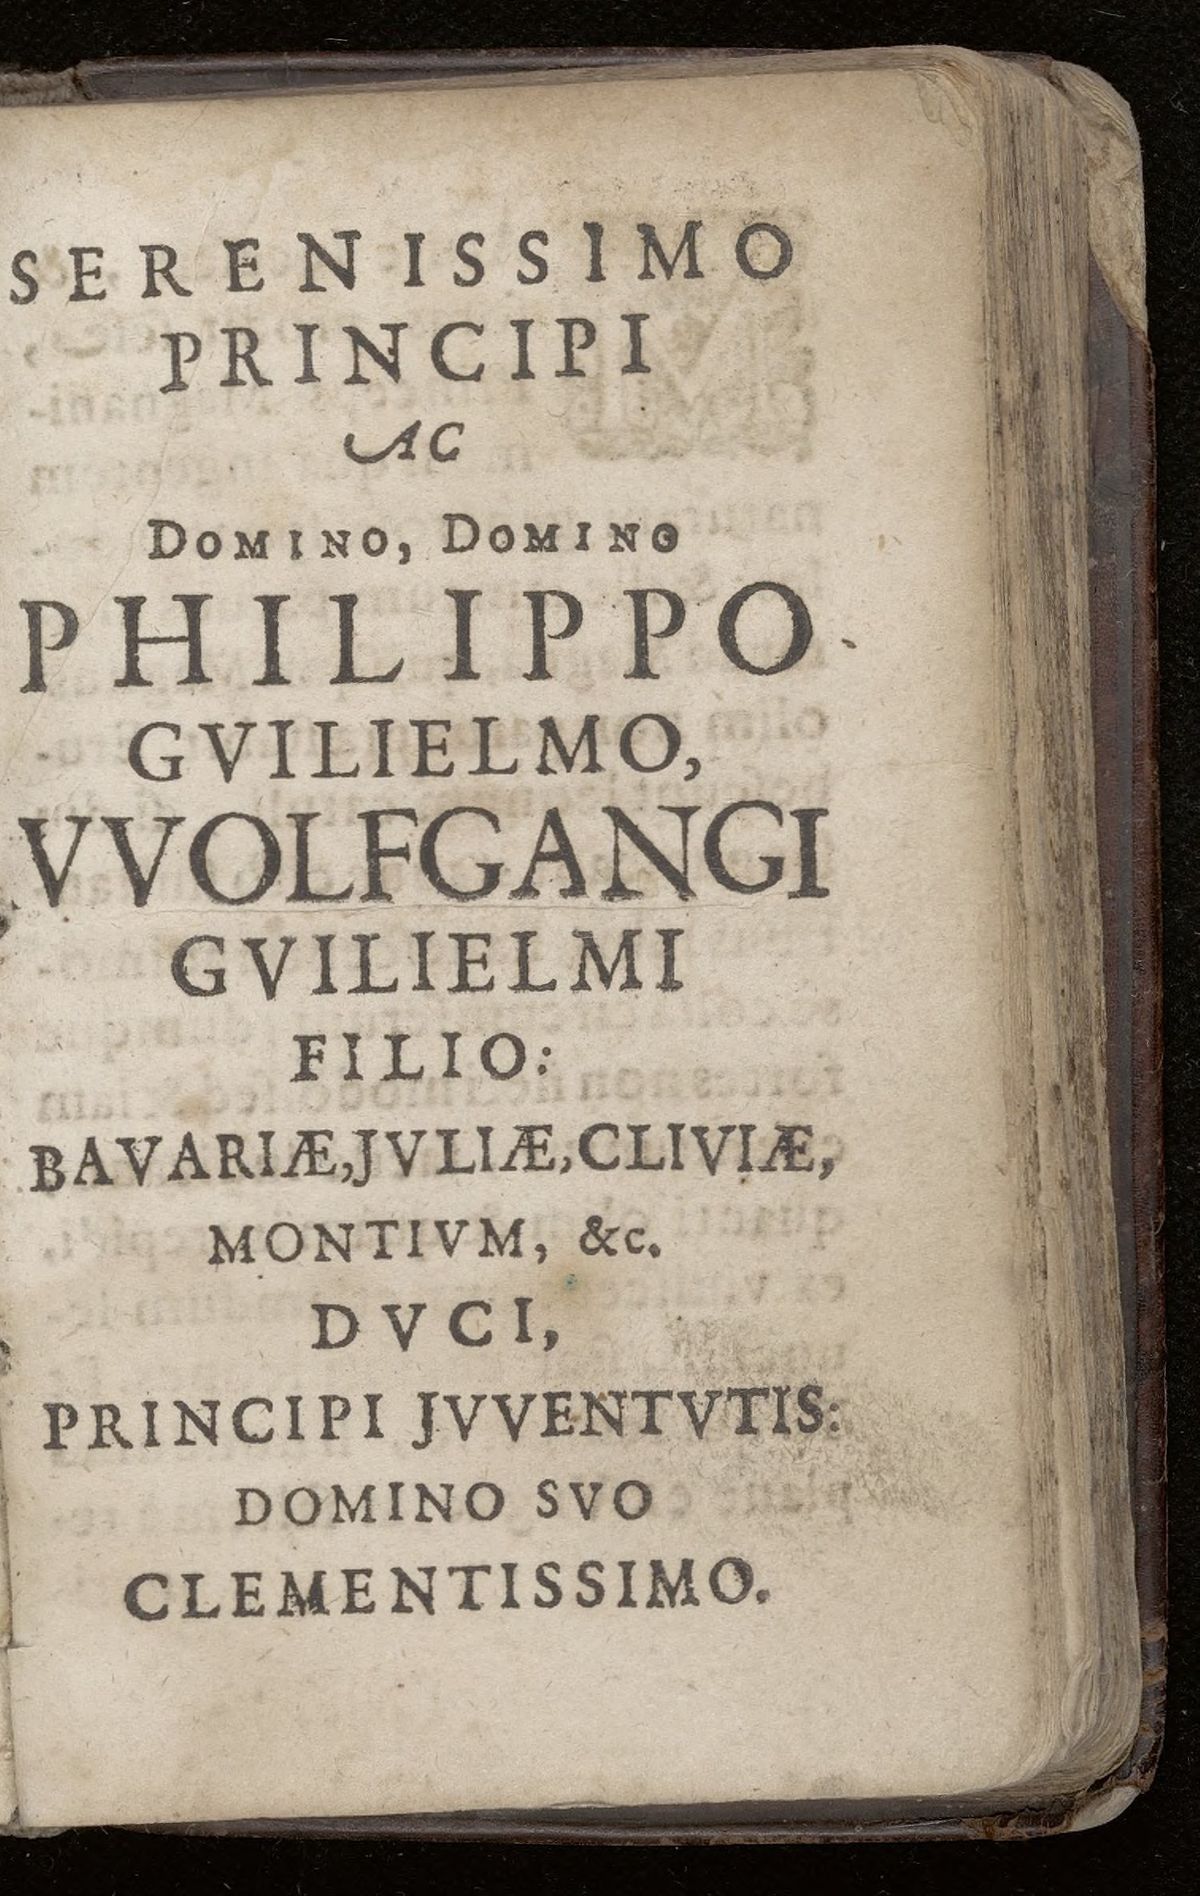 SERENISSIMO
PRINCIPI
AC
DOMINO, DOMINO
PHILIPPO
GVILIELMO,
VVOLFGANGI
GVILIELMI
FILIO:
BAVARIÆ, JVLIÆ, CLIVIÆ,
MONTIVM, &c.
DVCI,
PRINCIPI JVVENTVTIS:
DOMINO SVO
CLEMENTISSIMO.